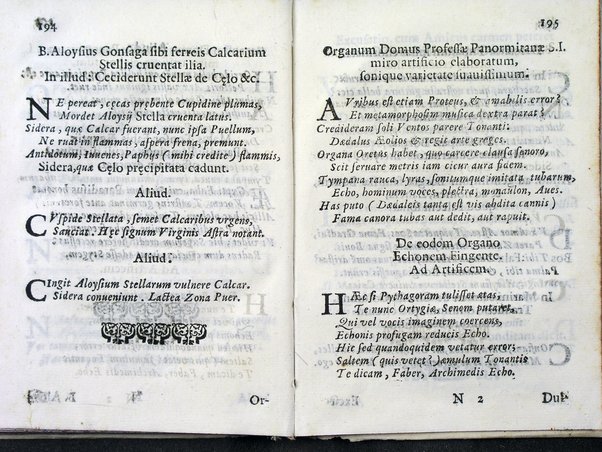 194
B. Aloysius Gonsaga sibi ferreis Calcarium
Stellis cruentat ilia.
In illud: Ceciderunt Stellæ de Cęlo &c.
NE pereat, cęcas prębente Cupidine plumas,
Mordet Aloysij Stella cruenta latus.
Sidera, quæ Calcar fuerant, nunc ipsa Puellum,
Ne ruat in flammas, aspera frena, premunt.
Antidotum, Iuuenes, Paphus (mihi credite) flammis,
Sidera, quæ Cęlo pręcipitata cadunt.
Aliud.
CVspide Stellata, semet Calcaribus vrgens,
Sauciat. Hęc signum Virginis Astra notant.
Aliud.
CIngit Aloysium Stellarum vulnere Calcar.
Sidera conueniunt. Lactea Zona Puer.
Or-
195
Organum Domus Professæ Panormitanæ S.I.
miro artificio elaboratum,
sonique varietate suauissimum.
AVribus est etiam Proteus, & amabilis error?
Et metamorphosim musica dextra parat?
Credideram soli Ventos parere Tonanti:
Dædalus Æolios & regit arte greges.
Organa Oretus habet, quo carcere clausa sonoro,
Scit seruare metris iam cicur aura fidem.
Tympana rauca, lyras, sonitumque imitata tubarum,
Echo, hominum voces, plectra, monaulon, Aues.
Has puto (Dædaleis tanta est vis abdita cannis)
Fama canora tubas aut dedit, aut rapuit.
De eodem Organo
Echonem Fingente.
Ad Artificem.
HÆc si Pythagoram tulisset ætas,
Te nunc Ortygia, Senem putaret,
Qui vel vocis imaginem coercens,
Echonis profugam reducis Echo.
Hic sed quandoquidem vetatur error;
Saltem (quis vetet?) æmulum Tonantis
Te dicam, Faber, Archimedis Echo.
N 2
Dul-